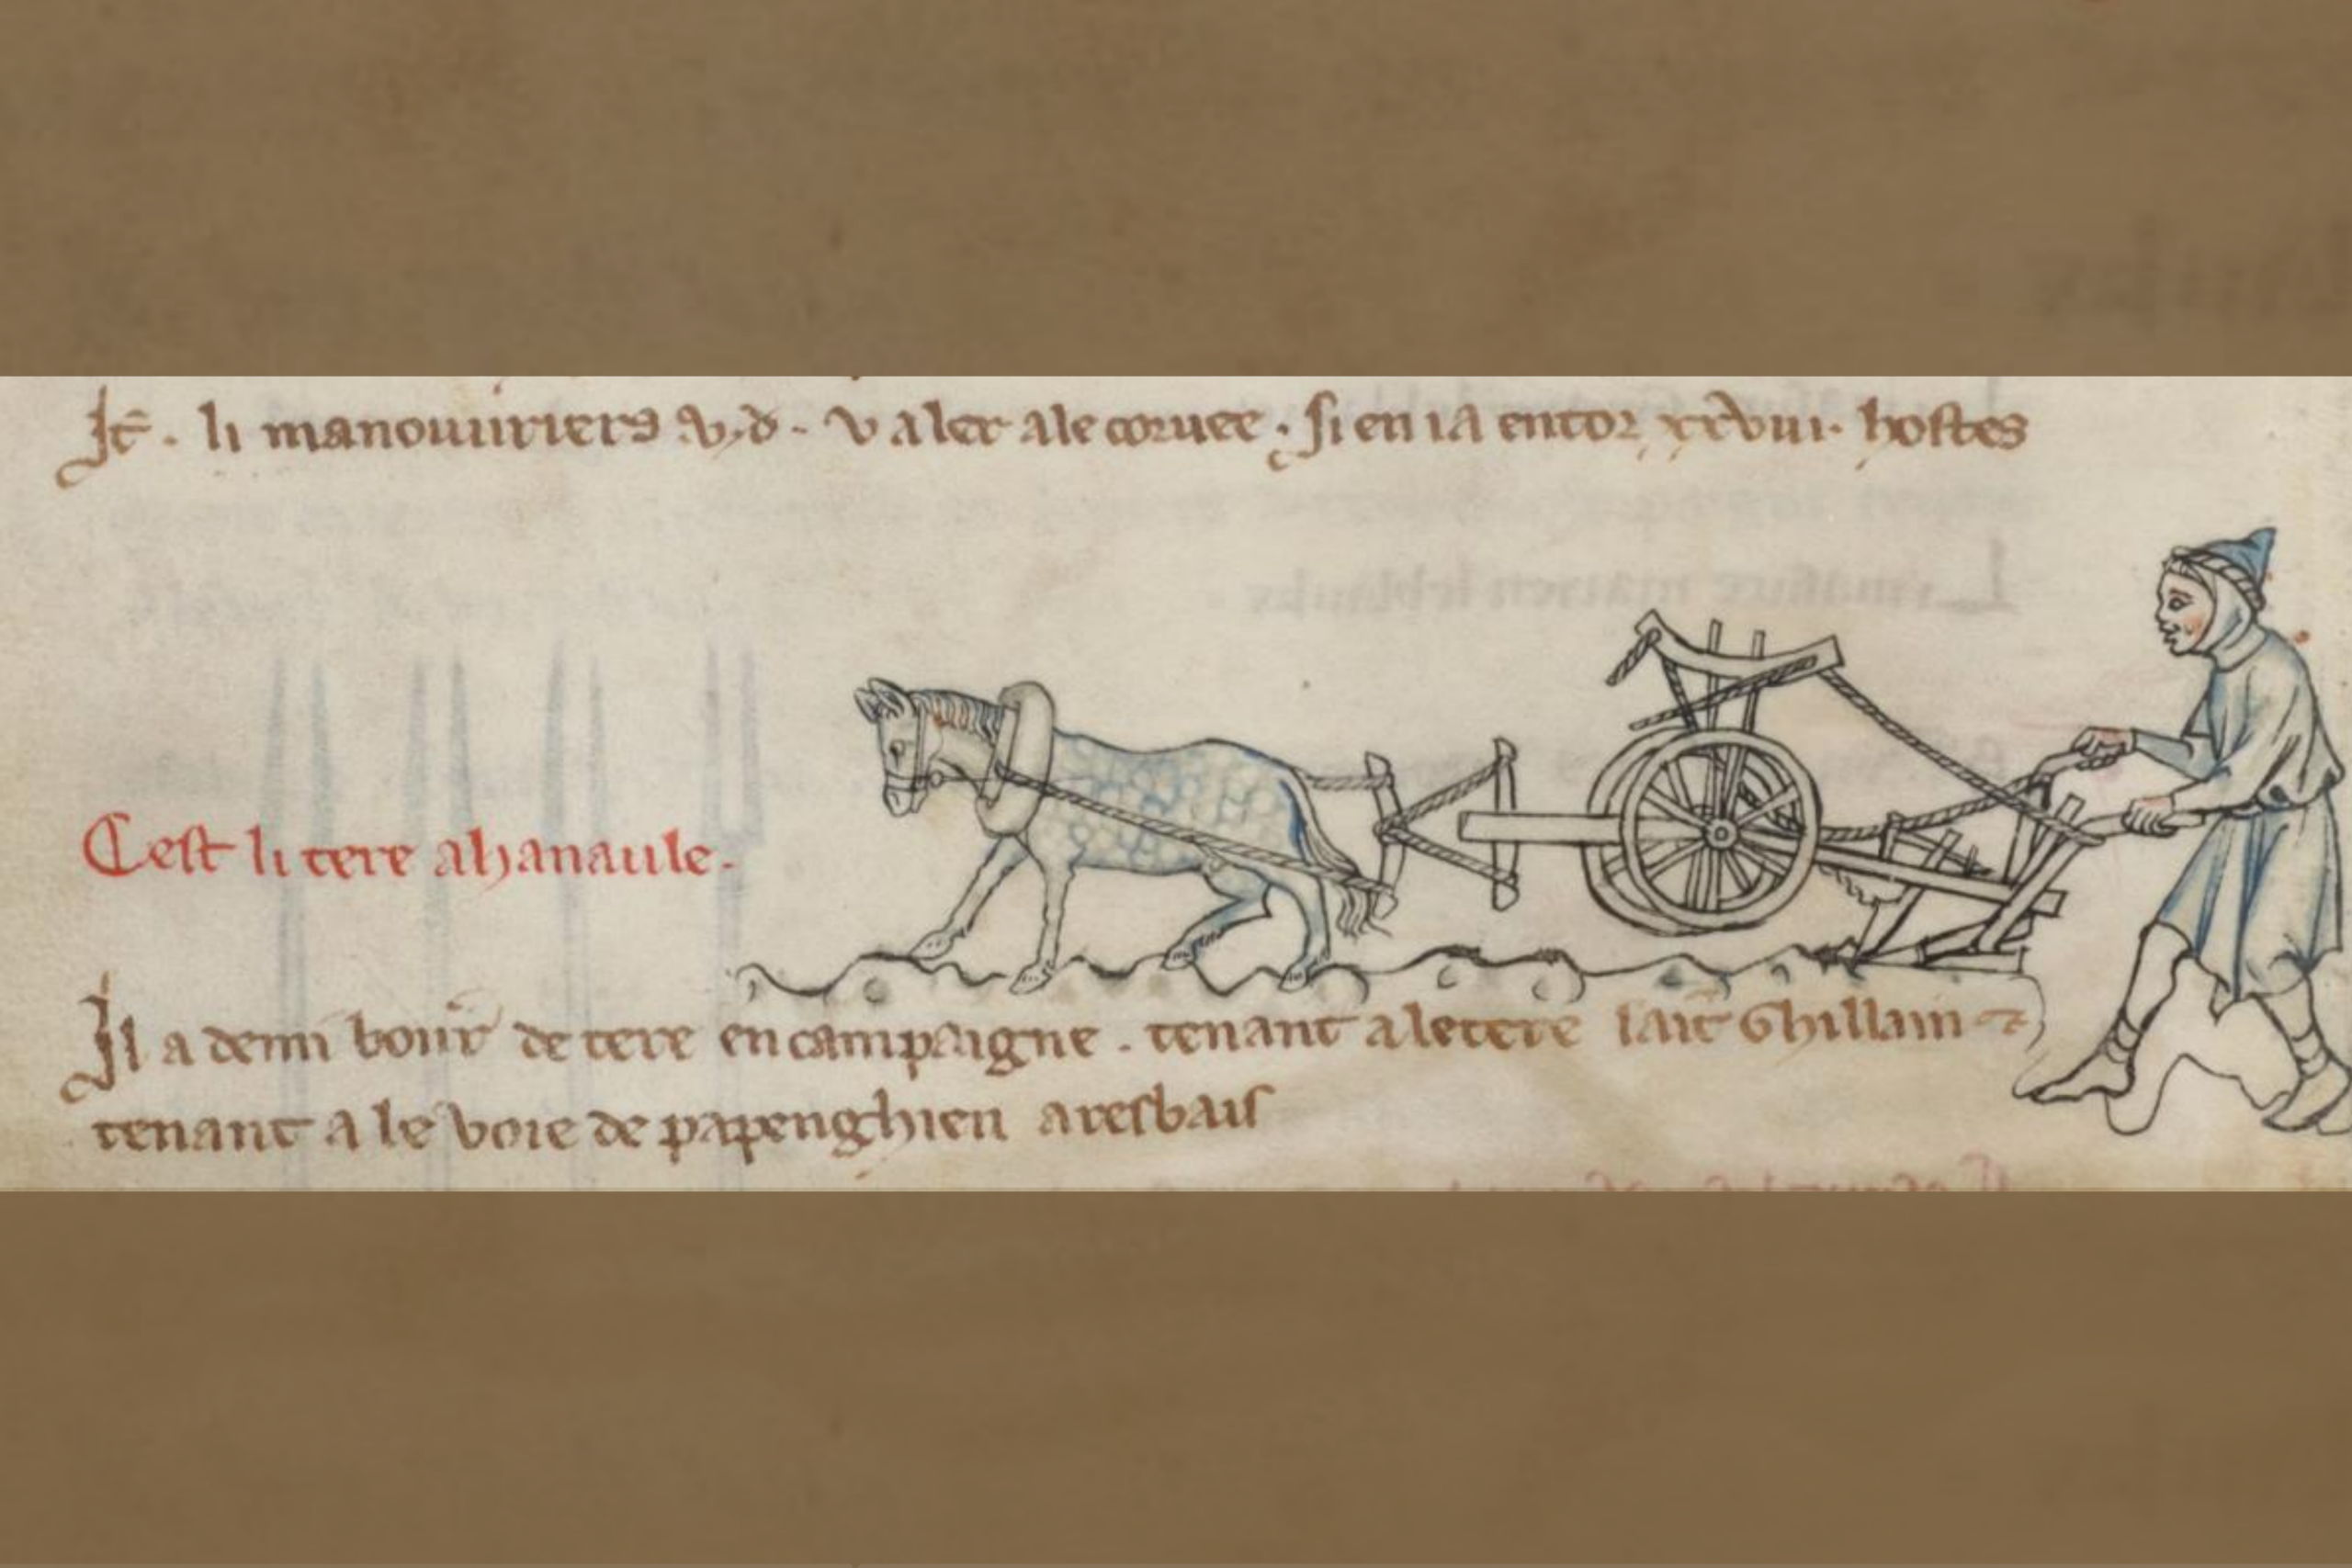 It̄. li manouuriers .v.d. v aler ale coruee. si en i a entor xxviii. hostes
Cest li tere ahanaule.
Il a demi bonir de tere en campaigne. tenant a le tere Ghillain ⁊
tenant a le voie de papenghien